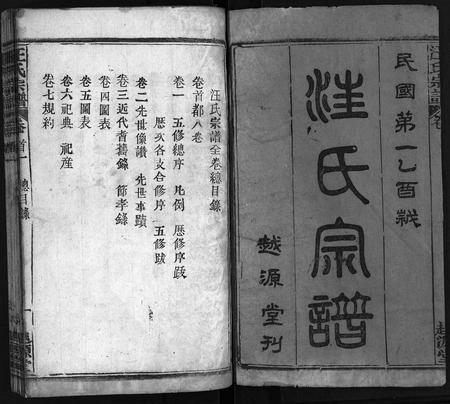 民國第一乙酉梓
汪氏宗譜
越源堂刊
汪氏宗譜全卷總目錄
卷首都八卷
卷一 五修總序 凡例 歷修序跋
歷次各支合修序 五修跋
卷二先世像讚 先世事蹟
卷三近代者舊錄 節孝錄
卷四圖表
卷五圖表
卷六祀典 祀產
卷七規約
汪氏宗譜 卷首一 總目錄